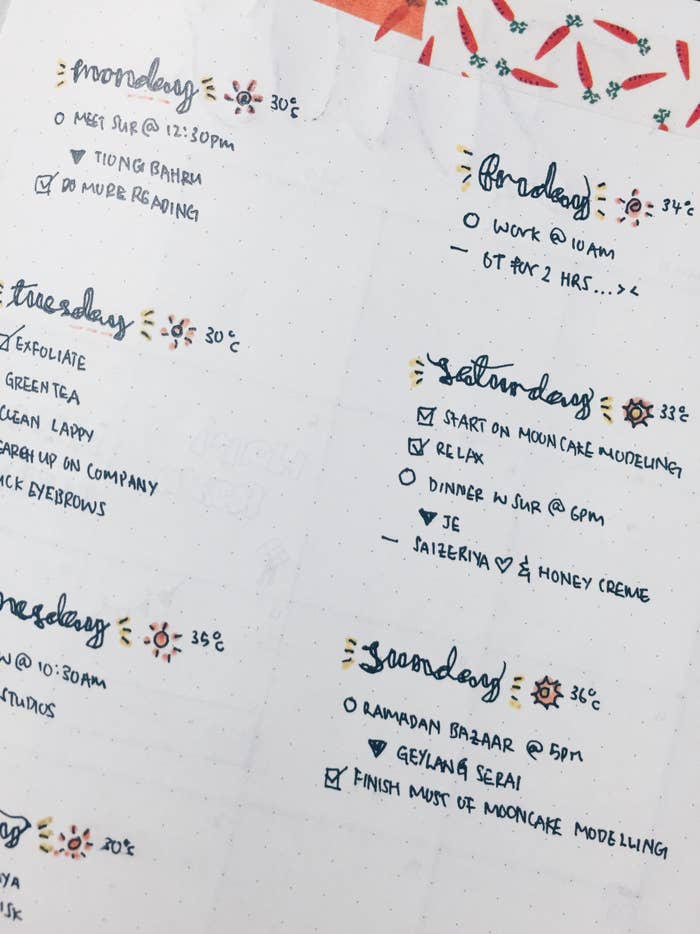 monday 30°C
MEET SUR @ 12:30PM
TIONG BAHRU
DO MORE READING
tuesday 30°C
EXFOLIATE
GREEN TEA
CLEAN LAPPY
UP ON COMPANY
EYEBROWS
35°C
@ 10:30AM
STUDIOS
30°C
friday 34°C
WORK @ 10AM
OT FOR 2 HRS...><
saturday 33°C
START ON MOONCAKE MODELING
RELAX
DINNER W SUR @ 6PM
JE
SAIZERIYA ♡ & HONEY CREME
sunday 36°C
RAMADAN BAZAAR @ 5PM
GEYLANG SERAI
FINISH MOST OF MOONCAKE MODELLING